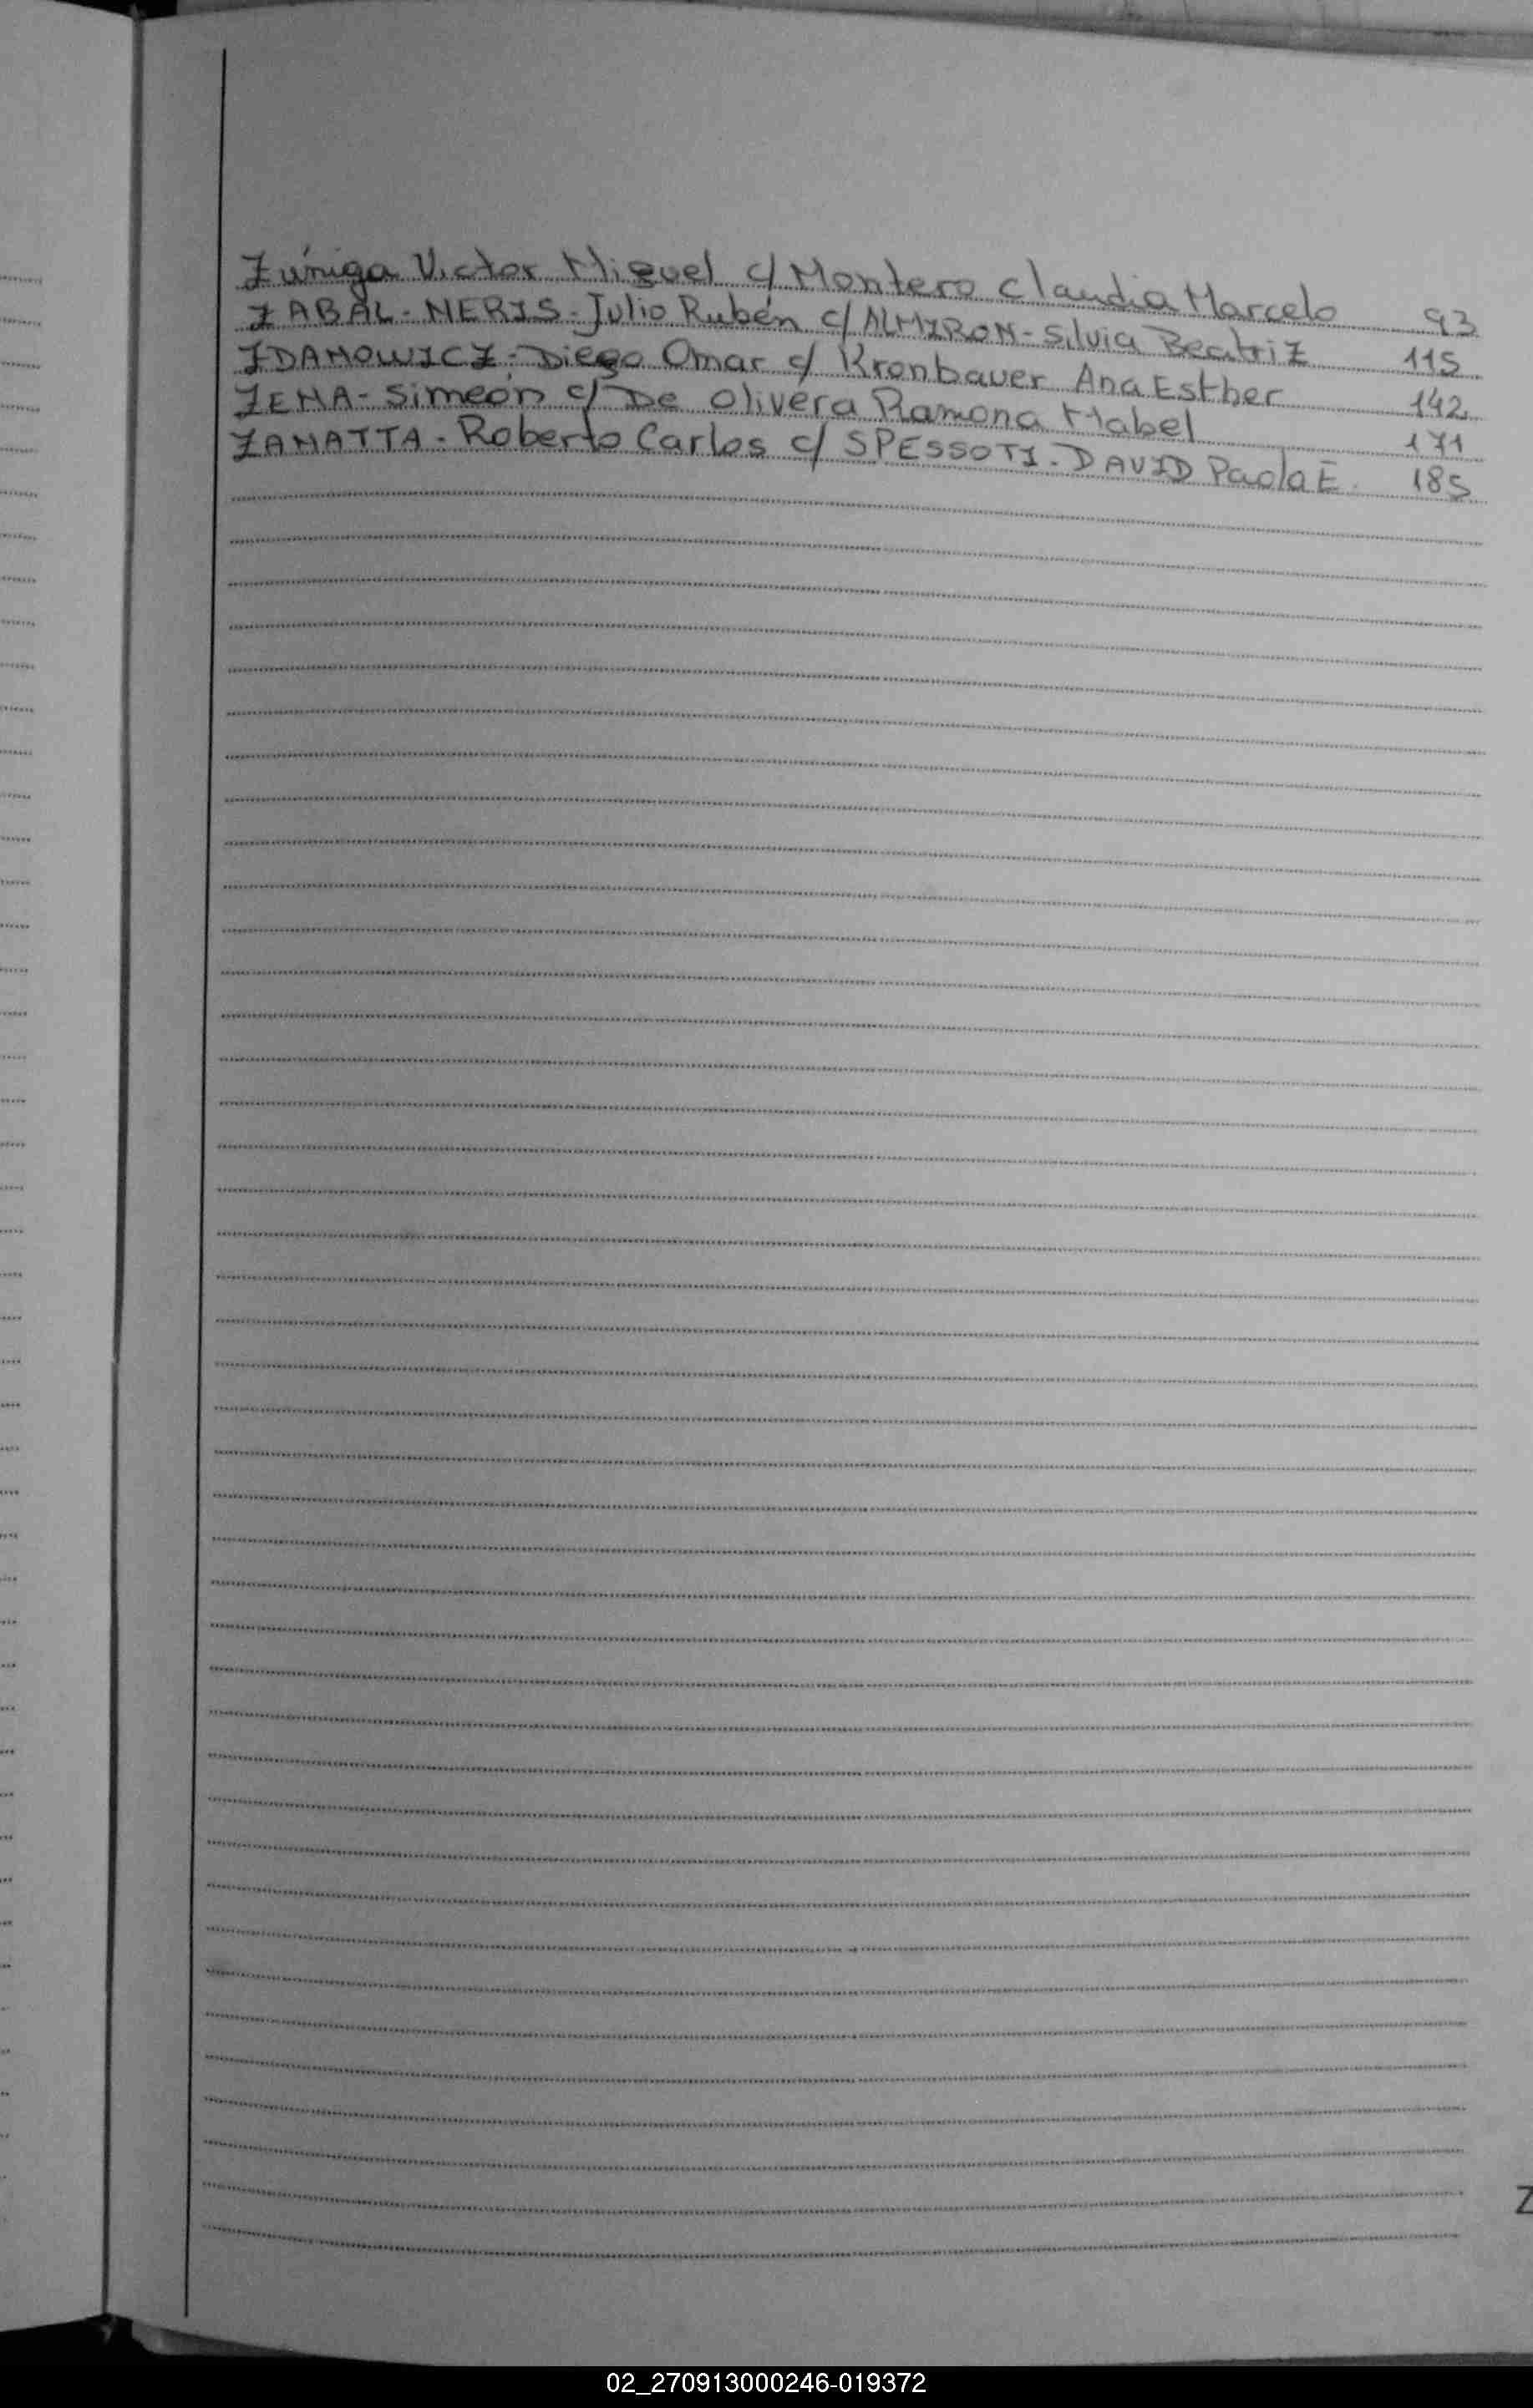 Zuñiga Victor Miguel c/ Montero Claudia Marcelo 93
ZABAL - NERIS - Julio Rubén c/ ALMIRON - Silvia Beatriz 115
ZDANOWICZ - Diego Omar c/ Kronbauer Ana Esther 142
ZENA - Simeón c/ De Olivera Ramona Mabel 171
ZANATTA - Roberto Carlos c/ SPESSOTI - DAVID Paola E. 185
Z
02_270913000246-019372